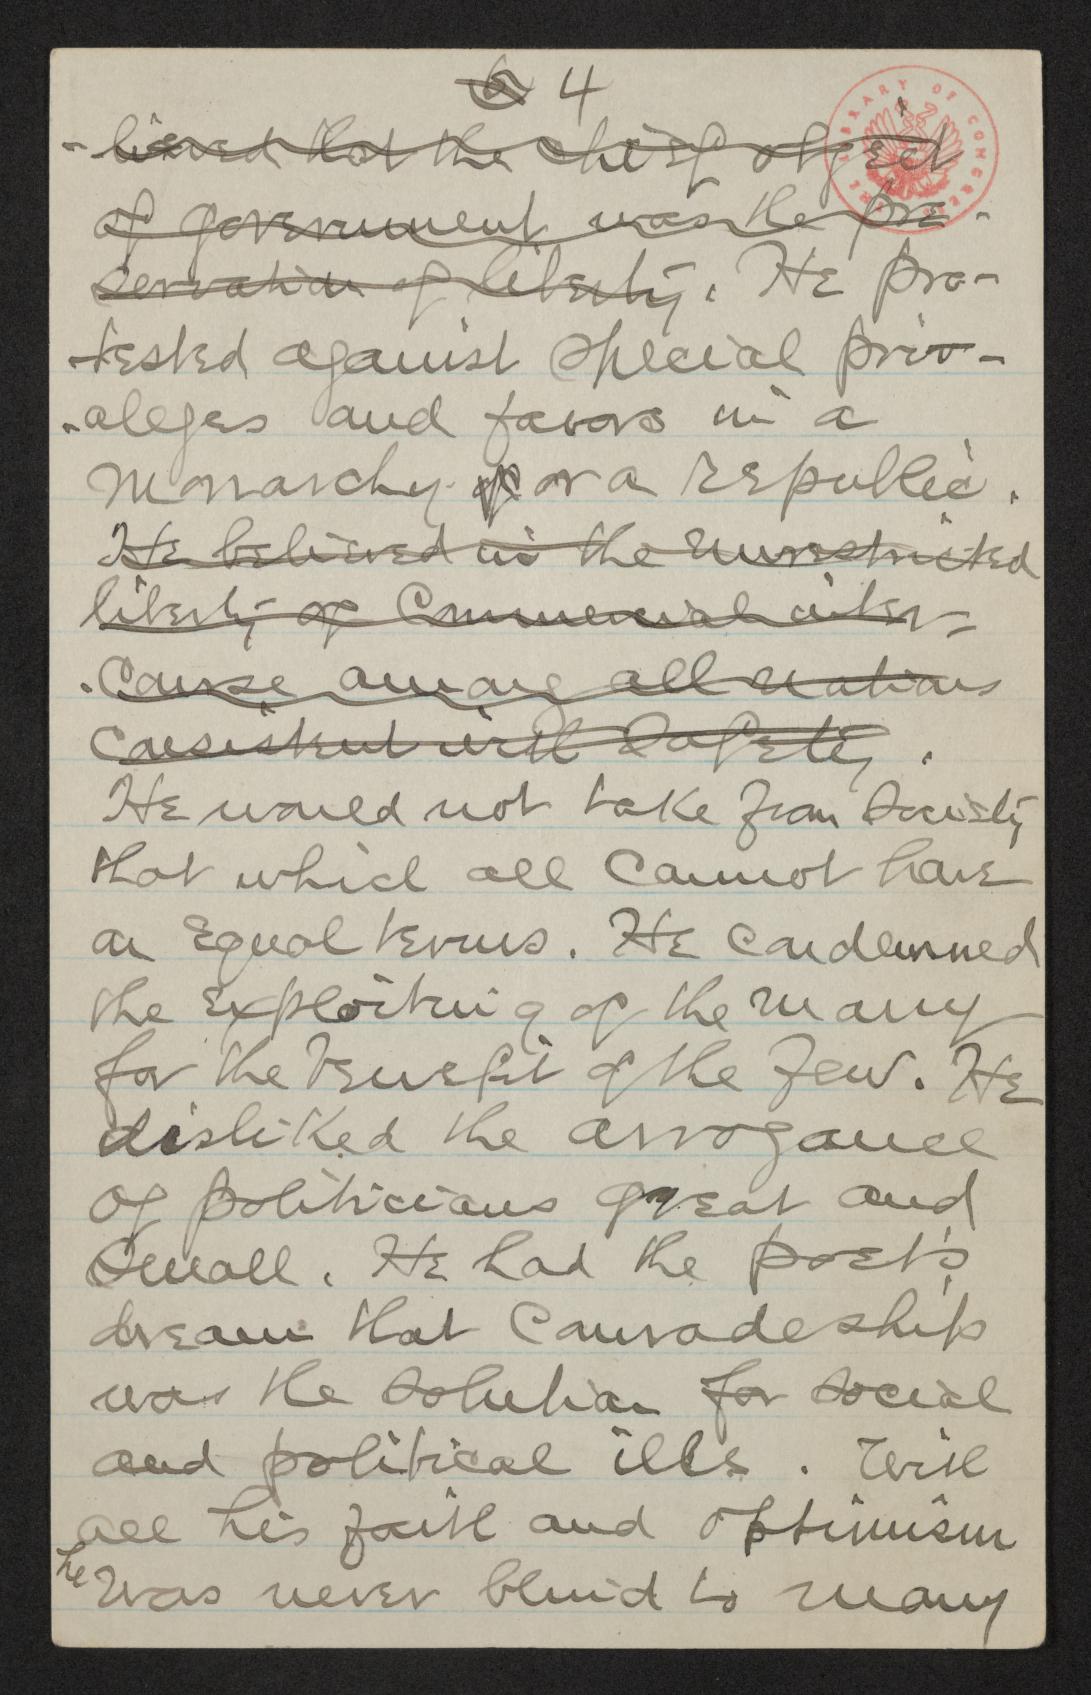 6 4
THE LIBRARY OF CONGRESS
-lieved that the chief object
of government was the pre-
servation of liberty. He pro-
-tested against special priv-
-aleges and favors in a
monarchy or a republic.
He believed in the unrestricted
liberty of Commercial inter-
-course among all nations
consistent with safety.
He would not take from society
that which all cannot have
on equal terms. He condemned
the exploiting of the many
for the benefit of the few. He
disliked the arrogance
of politicians great and
small. He had the poet's
dream that Comradeship
was the solution for social
and political ills. With
all his faith and optimism
he was never blind to many